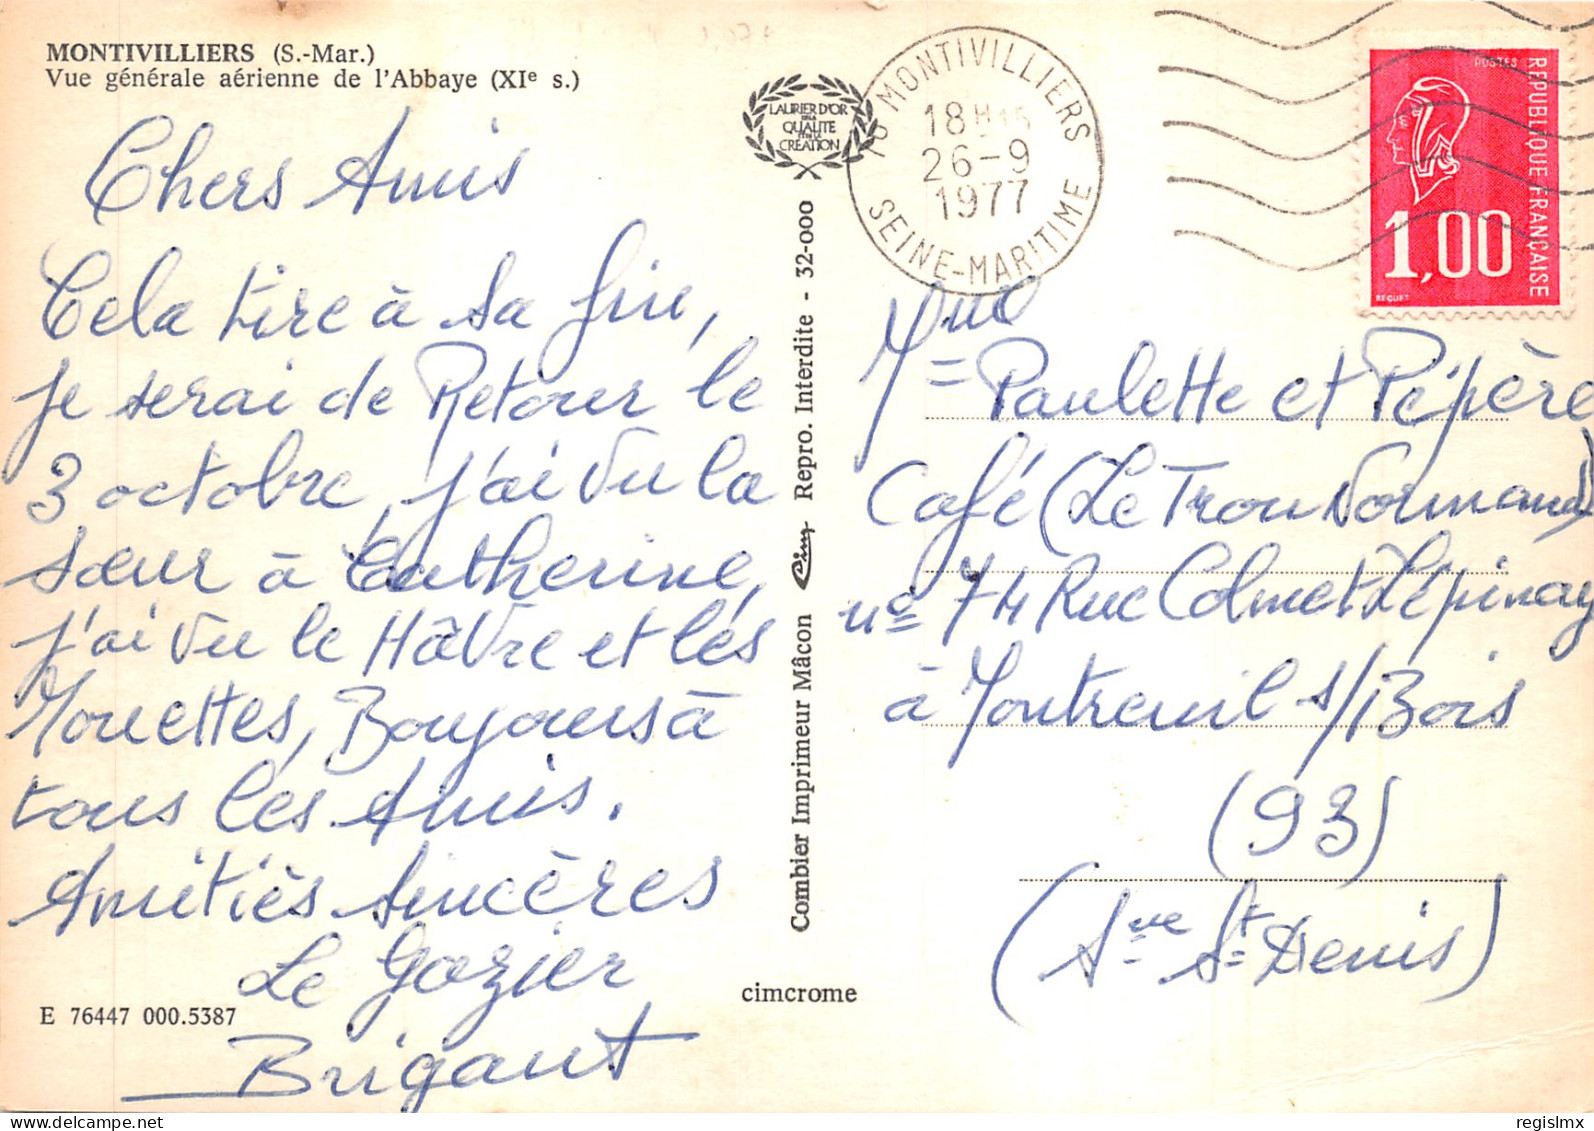 MONTIVILLIERS (S.-Mar.)
Vue générale aérienne de l'Abbaye (XIe s.)
Chers Amis
Cela tire à sa fin,
je serai de Retour le
3 octobre, j'ai vu la
sœur à Catherine,
j'ai vu le Hâvre et les
Mouettes, Bonjours à
tous les Amis.
Amitiés sincères
Le Gazier
Brigant
E 76447 000.5387
LAURIER D'OR
DE LA
QUALITE
ET DE LA
CREATION
Combier Imprimeur Mâcon Cim Repro. Interdite - 32-000
cimcrome
76 MONTIVILLIERS
18H15
26-9
1977
SEINE-MARITIME
POSTES
REPUBLIQUE FRANÇAISE
1,00
BEQUET
Mme Paulette et Pépère
Café (Le Trou Normand)
n° 74 Rue Colmet Lépinay
à Montreuil s/Bois
(93)
(Sne St Denis)
registmx
delcampe.net